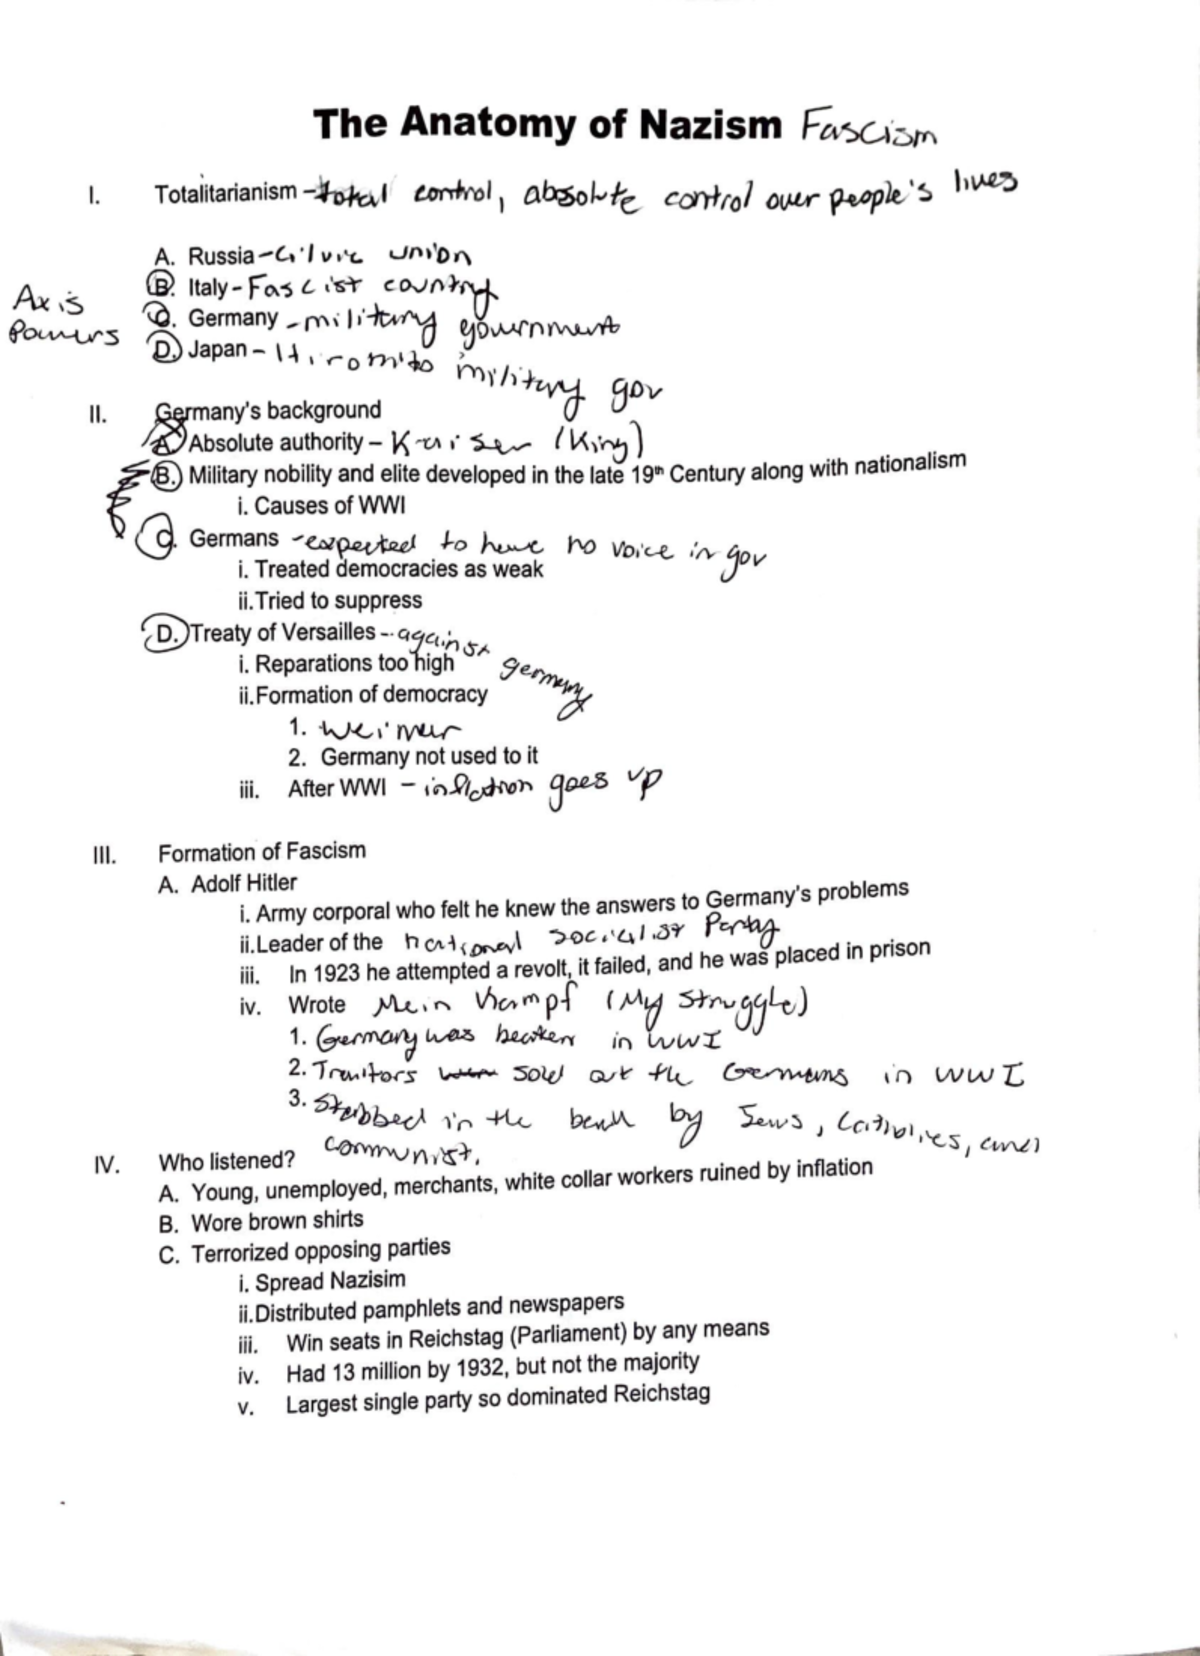 The Anatomy of Nazism Fascism
I. Totalitarianism - total control, absolute control over people's lives
A. Russia - union
B. Italy - Fascist country
Axis Powers
C. Germany - military government
D. Japan - Hiromito military gov
II. Germany's background
A. Absolute authority - Kaiser (King)
B. Military nobility and elite developed in the late 19th Century along with nationalism
i. Causes of WWI
C. Germans - expected to have no voice in gov
i. Treated democracies as weak
ii. Tried to suppress
D. Treaty of Versailles - against germany
i. Reparations too high
ii. Formation of democracy
1. Weimar
2. Germany not used to it
iii. After WWI - inflation goes up
III. Formation of Fascism
A. Adolf Hitler
i. Army corporal who felt he knew the answers to Germany's problems
ii. Leader of the national socialist Party
iii. In 1923 he attempted a revolt, it failed, and he was placed in prison
iv. Wrote Mein Kampf (My Struggle)
1. Germany was beaten in WWI
2. Traitors sold out the Germans in WWI
3. Stabbed in the back by Jews, Catholics, and
communist.
IV. Who listened?
A. Young, unemployed, merchants, white collar workers ruined by inflation
B. Wore brown shirts
C. Terrorized opposing parties
i. Spread Nazisim
ii. Distributed pamphlets and newspapers
iii. Win seats in Reichstag (Parliament) by any means
iv. Had 13 million by 1932, but not the majority
v. Largest single party so dominated Reichstag